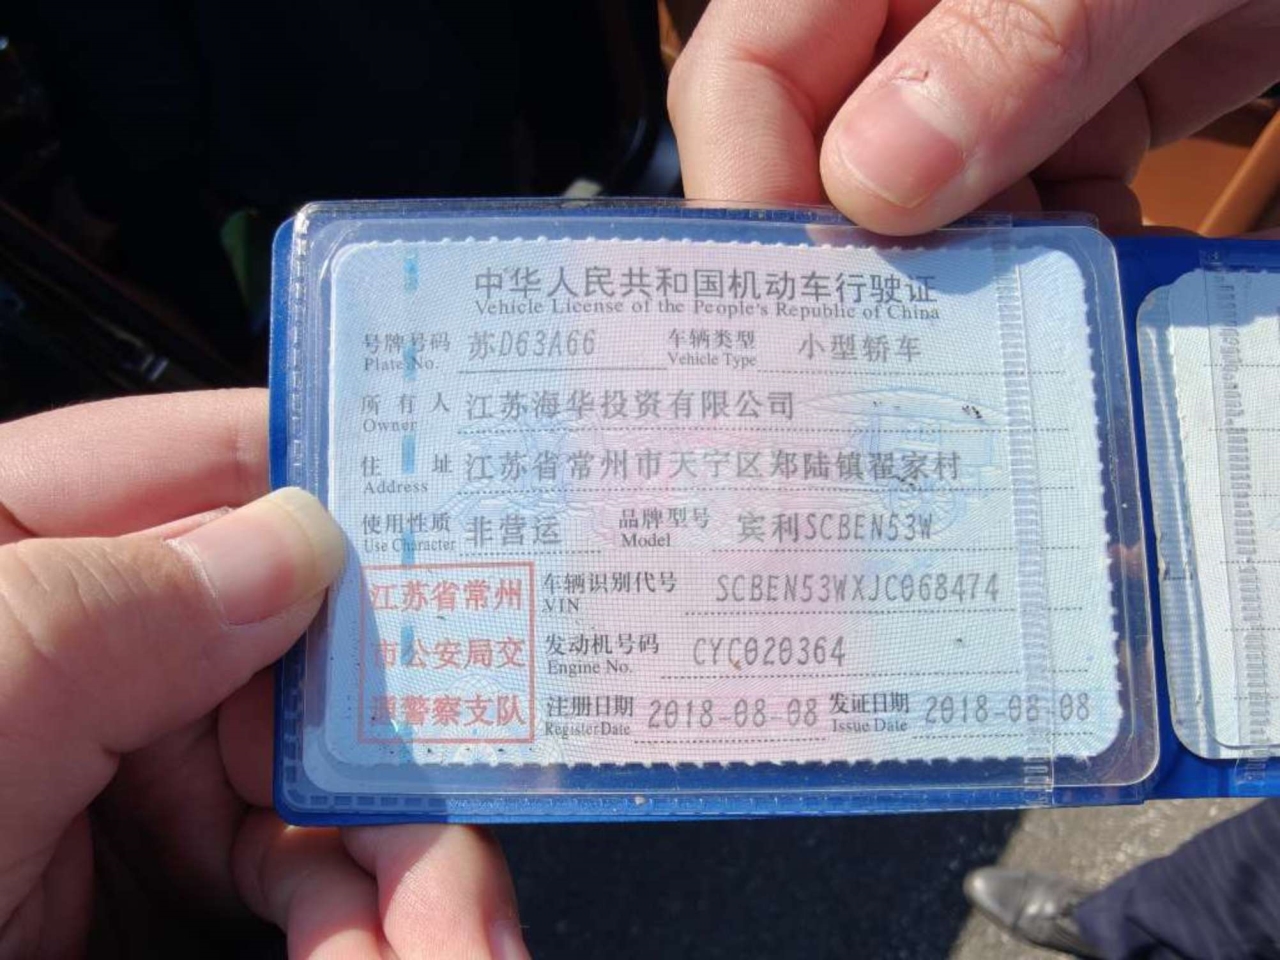 中华人民共和国机动车行驶证
Vehicle License of the People's Republic of China
号牌号码 苏D63A66 车辆类型 小型轿车
Plate No. Vehicle Type
所有人 江苏海华投资有限公司
Owner
住址 江苏省常州市天宁区郑陆镇翟家村
Address
使用性质 非营运 品牌型号 宾利SCBEN53W
Use Character Model
江苏省常州
市公安局交
通警察支队
车辆识别代号 SCBEN53WXJC068474
VIN
发动机号码 CYC020364
Engine No.
注册日期 2018-08-08 发证日期 2018-08-08
Register Date Issue Date